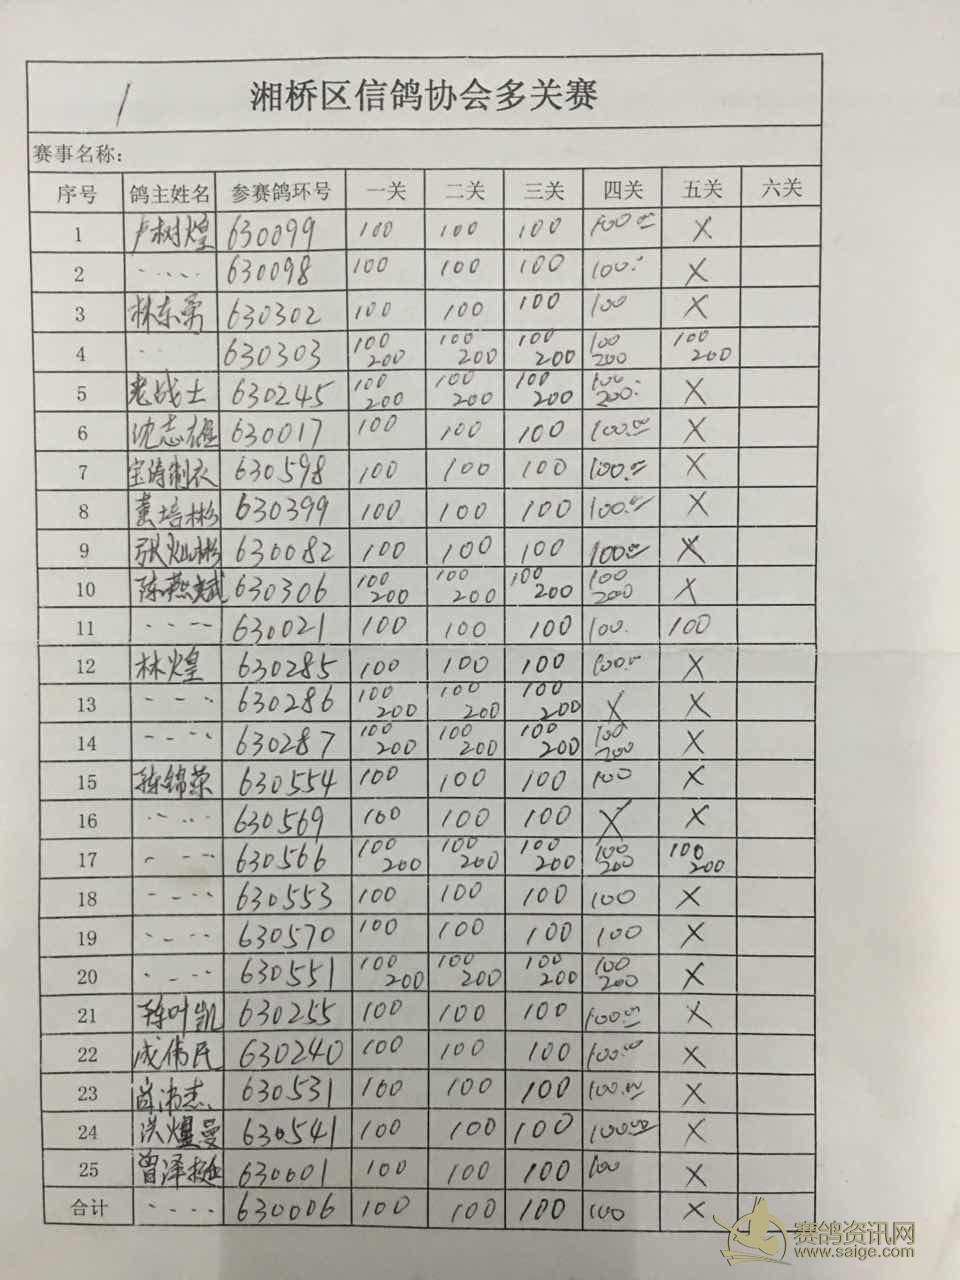 1
湘桥区信鸽协会多关赛
赛事名称：
序号 鸽主姓名 参赛鸽环号 一关 二关 三关 四关 五关 六关
1 卢树煌 630099 100 100 100 100.00 X
2 ---- 630098 100 100 100 100.- X
3 林东勇 630302 100 100 100 100 X
4 -- 630303 100 200 100 200 100 200 100 200 100 200
5 老战士 630245 100 200 100 200 100 200 100 200 X
6 沈志雄 630017 100 100 100 100.00 X
7 宝涛制衣 630598 100 100 100 100.00 X
8 培彬 630399 100 100 100 100.00 X
9 张灿彬 630082 100 100 100 100.00 X
10 陈燕斌 630306 100 200 100 200 100 200 100 200 X
11 ---- 630021 100 100 100 100. 100
12 林煌 630285 100 100 100 100.00 X
13 --- 630286 100 200 100 200 100 200 X X
14 ---- 630287 100 200 100 200 100 200 100 200 X
15 陈锦荣 630554 100 100 100 100 X
16 ---- 630569 100 100 100 X X
17 --- 630566 100 200 100 200 100 200 100 200 100 200
18 ---- 630553 100 100 100 100 X
19 ---- 630570 100 100 100 100 X
20 ---- 630551 100 200 100 200 100 200 100 200 X
21 陈叶凯 630255 100 100 100 100.00 X
22 成伟民 630240 100 100 100 100.00 X
23 630531 100 100 100 100.00 X
24 洪煌曼 630541 100 100 100 100.00 X
25 曾泽 630001 100 100 100 100 X
合计 ---- 630006 100 100 100 100 X
赛鸽资讯网
www.saige.com